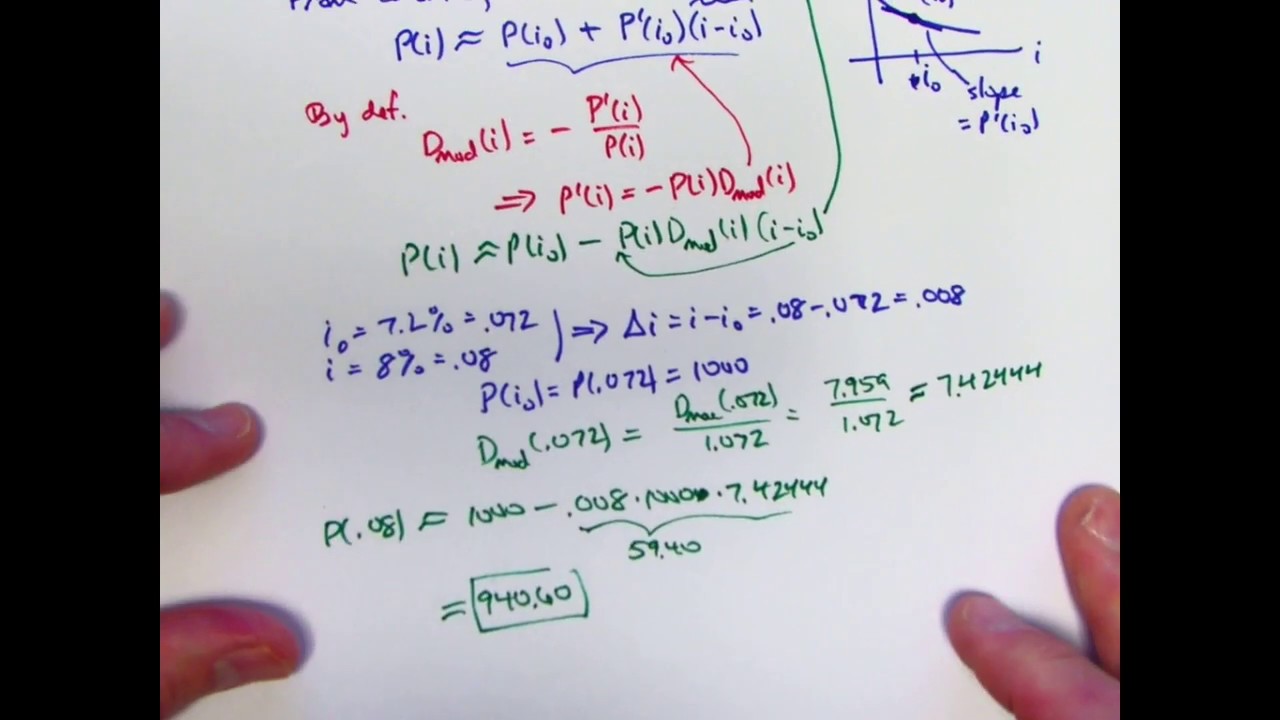 P(i) ≈ P(i₀) + P'(i₀)(i-i₀)
i
i₀
slope
= P'(i₀)
By def.
Dmod(i) = - P'(i)/P(i)
⇒ P'(i) = -P(i)Dmod(i)
P(i) ≈ P(i₀) - P(i)Dmod(i)(i-i₀)
i₀ = 7.2% = .072
i = 8% = .08
⇒ Δi = i-i₀ = .08-.072 = .008
P(i₀) = P(.072) = 1000
Dmod(.072) = Dmac(.072)/1.072 = 7.959/1.072 = 7.42444
P(.08) = 1000 - .008·1000·7.42444
59.40
= 940.60